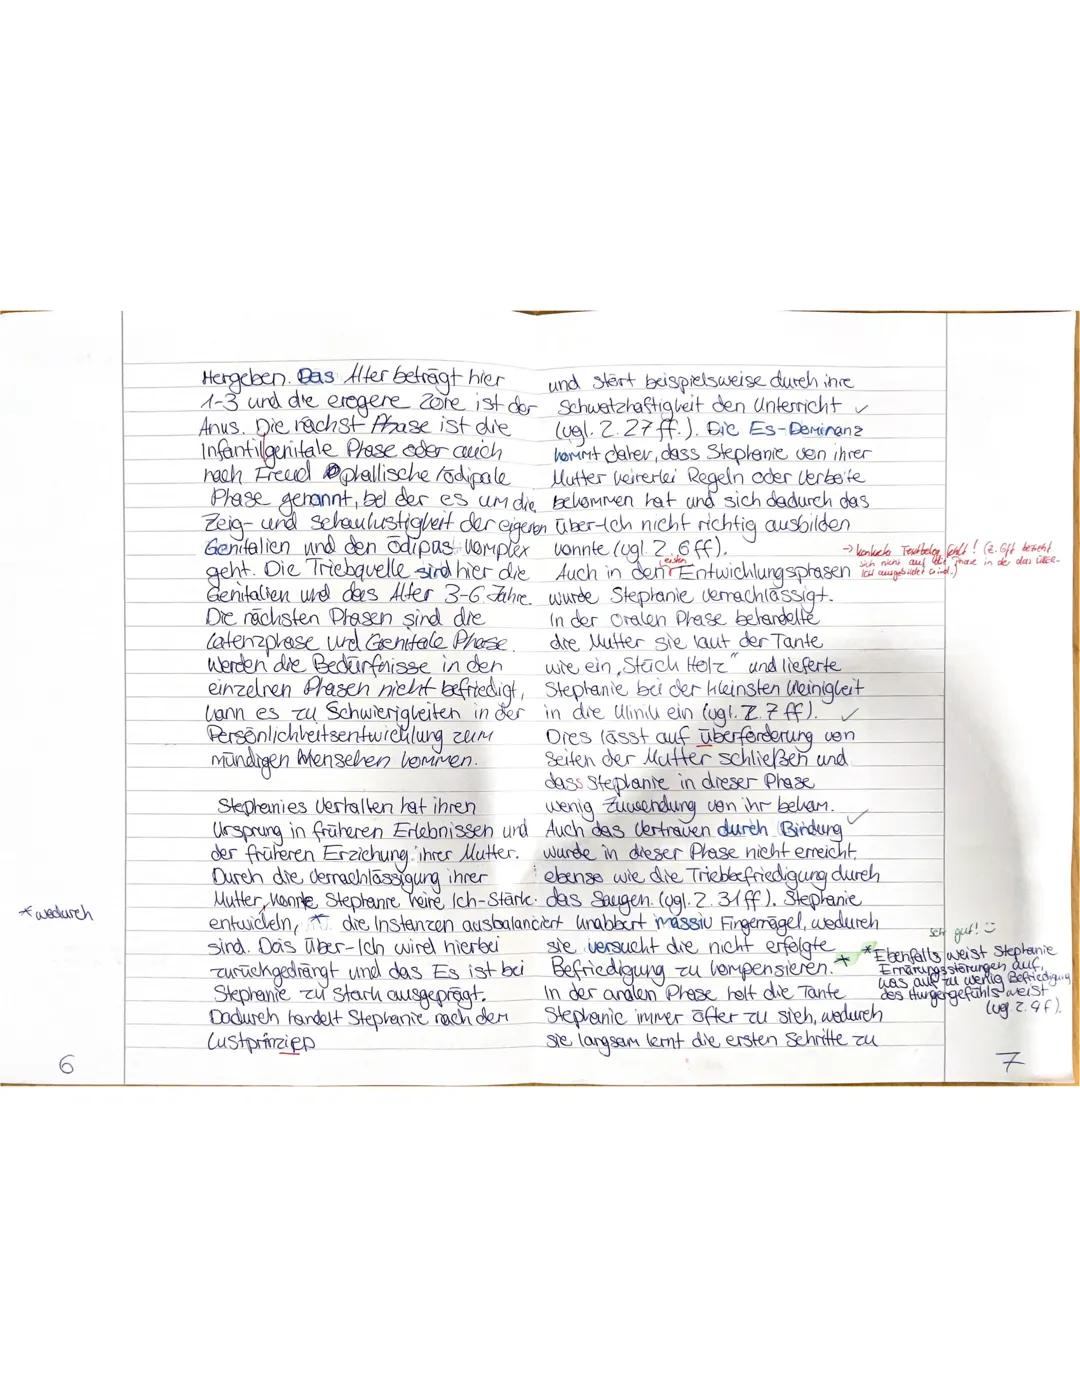 Hergeben. Das Alter beträgt hier
1-3 und die erogene Zone ist der
Anus. Die nächst Phase ist die
Infantilgenitale Phase oder auch
nach Freud phallische/ödipale
Phase genannt, bei der es um die
Zeig- und Schaulustigkeit der eigenen
Genitalien und den Ödipus-Komplex
geht. Die Triebquelle sind hier die
Genitalien und das Alter 3-6 Jahre.
Die nächsten Phasen sind die
Latenzphase und Genitale Phase.
Werden die Bedürfnisse in den
einzelnen Phasen nicht befriedigt,
kann es zu Schwierigkeiten in der
Persönlichkeitsentwicklung zum
mündigen Menschen kommen.
Stephanies Verhalten hat ihren
Ursprung in früheren Erlebnissen und
der früheren Erziehung ihrer Mutter.
Durch die Vernachlässigung ihrer
Mutter, konnte Stephanie keine Ich-Stärke
entwickeln, * die Instanzen ausbalanciert
* wodurch
sind. Das Über-Ich wird hierbei
zurückgedrängt und das Es ist bei
Stephanie zu stark ausgeprägt.
Dadurch handelt Stephanie nach dem
Lustprinzipp
6
und stört beispielsweise durch ihre
Schwatzhaftigkeit den Unterricht ✓
(vgl. Z. 27 ff.). Die Es-Dominanz
kommt daher, dass Stephanie von ihrer
Mutter keinerlei Regeln oder Verbote
bekommen hat und sich dadurch das
Über-Ich nicht richtig ausbilden
konnte (vgl. Z. 6 ff).
→ konkreter Textbeleg fehlt! (Z. 6ff bezieht
sich nicht auf die Phase in der das Über-
Ich ausgebildet wird.)
ersten
Auch in den Entwicklungsphasen
wurde Stephanie vernachlässigt.
In der Oralen Phase behandelte
die Mutter sie laut der Tante
wie ein „Stück Holz" und lieferte
Stephanie bei der kleinsten Kleinigkeit
in die Klinik ein (vgl. Z. 7 ff). ✓
Dies lässt auf Überforderung von
Seiten der Mutter schließen und
dass Stephanie in dieser Phase
wenig Zuwendung von ihr bekam.
Auch das Vertrauen durch Bindung ✓
wurde in dieser Phase nicht erreicht,
ebenso wie die Triebbefriedigung durch
das Saugen. (vgl. Z. 31 ff). Stephanie
knabbert massiv Fingernägel, wodurch
sie versucht die nicht erfolgte
Befriedigung zu kompensieren. *
sehr gut! :)
* Ebenfalls weist Stephanie
Ernärungsstörungen auf,
was auf zu wenig Befriedigung
des Hungergefühls weist
(vgl. Z. 9 f).
In der analen Phase holt die Tante
Stephanie immer öfter zu sich, wodurch
sie langsam lernt die ersten Schritte zu
7